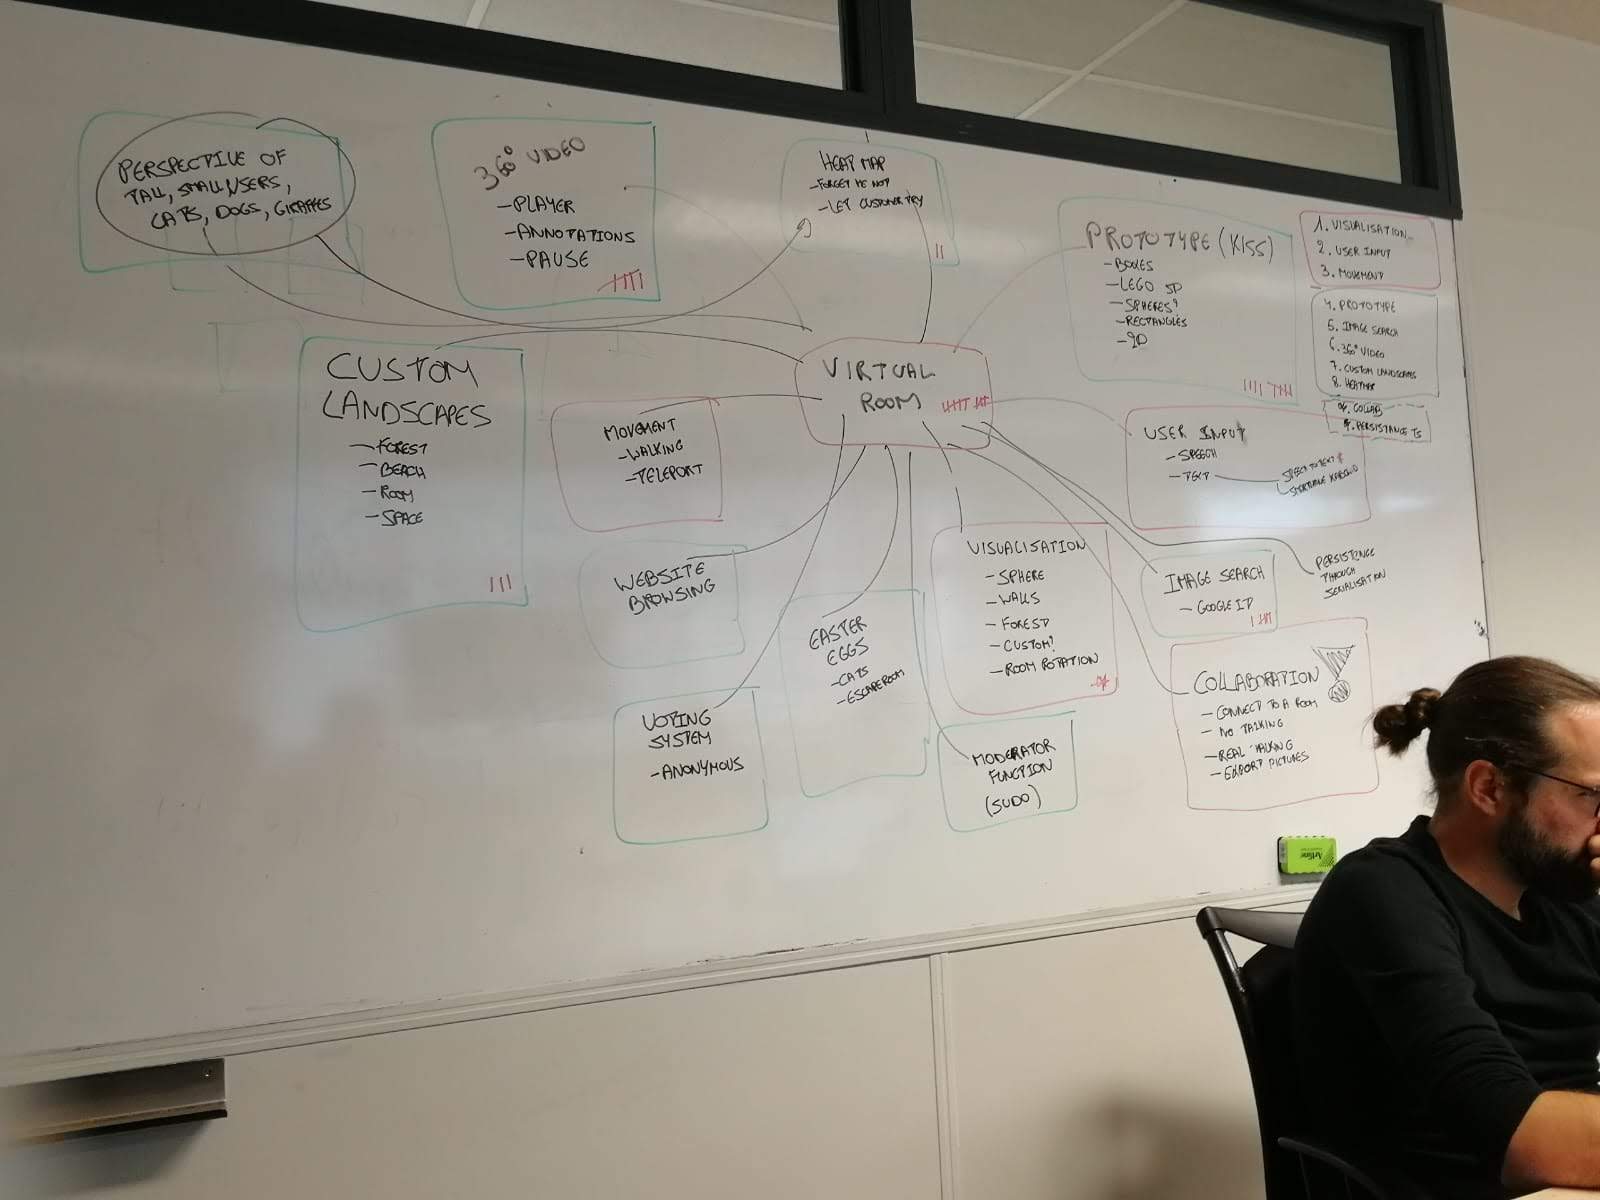 PERSPECTIVE OF
TALL, SMALL USERS,
CATS, DOGS, GIRAFFES
360° VIDEO
- PLAYER
- ANNOTATIONS
- PAUSE
HEAT MAP
- FORGET ME NOT
- LET CUSTOMER TRY
PROTOTYPE (KISS)
- BOXES
- LEGO
- SPHERES?
- RECTANGLES
1. VISUALISATION
2. USER INPUT
3. MOVEMENT
4. PROTOTYPE
5. IMAGE SEARCH
6. 360° VIDEO
7. CUSTOM LANDSCAPES
8. HEATMAP
COLLAB
PERSISTANCE TS
CUSTOM
LANDSCAPES
- FOREST
- BEACH
- ROOM
- SPACE
VIRTUAL
ROOM
MOVEMENT
- WALKING
- TELEPORT
USER INPUT
- SPEECH
- TEXT
SPEECH TO TEXT
WEBSITE
BROWSING
EASTER
EGGS
- CATS
- ESCAPEROOM
VISUALISATION
- SPHERE
- WALLS
- FOREST
- CUSTOM?
- ROOM ROTATION
IMAGE SEARCH
- GOOGLE IT
PERSISTENCE
THROUGH
SERIALISATION
VOTING
SYSTEM
- ANONYMOUS
MODERATOR
FUNCTION
(SUDO)
COLLABORATION
- CONNECT TO A ROOM
- NO TALKING
- REAL TALKING
- EXPORT PICTURES
Artline